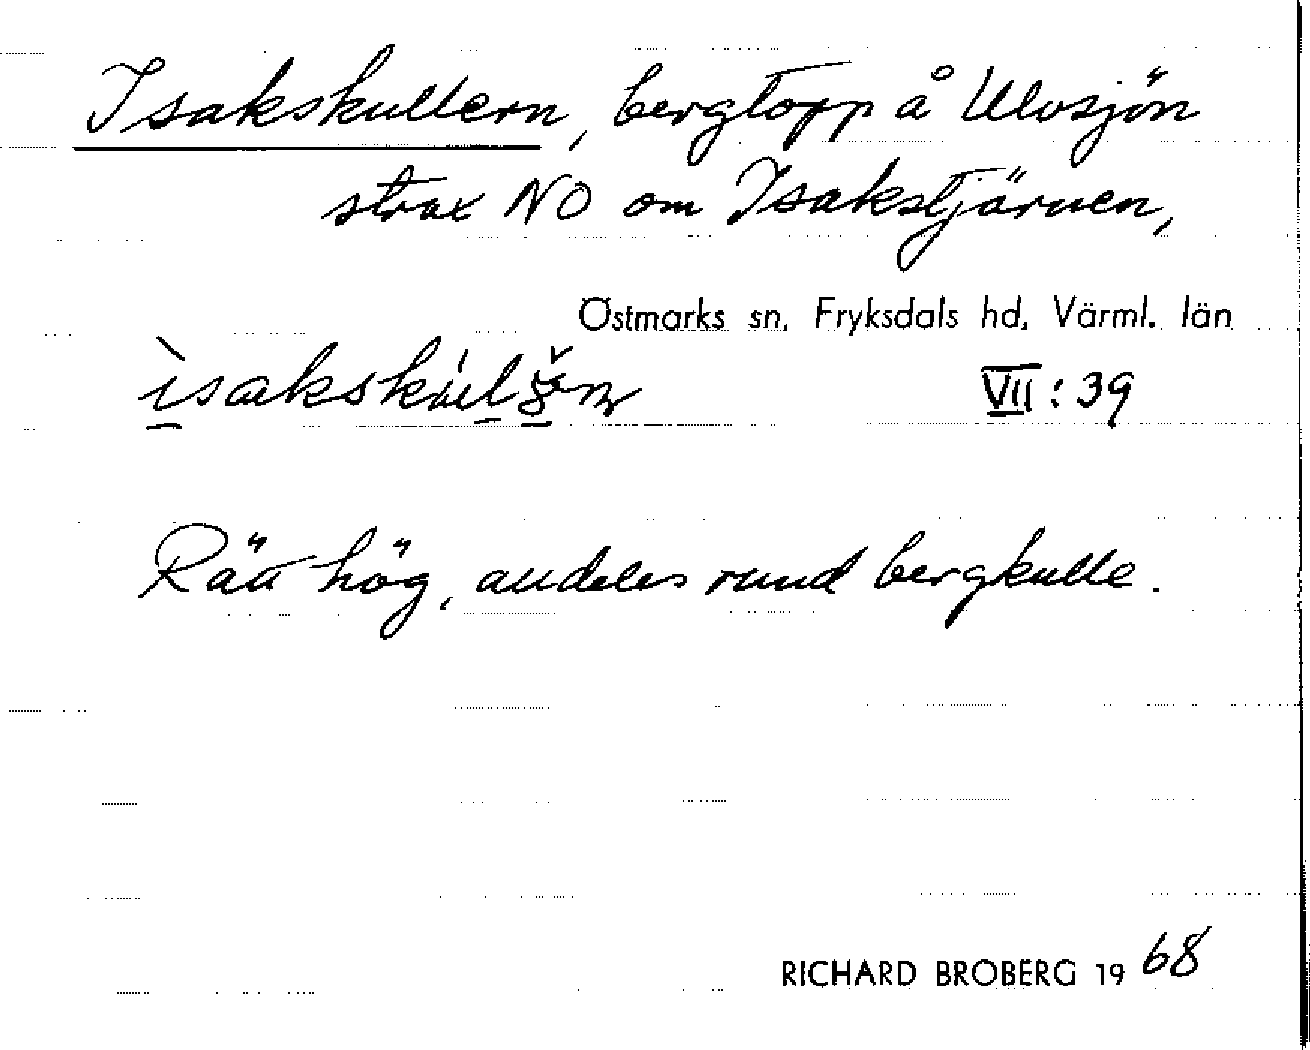 Isakskullern, bergtopp å Ulvsjön
strax NO om Isakstjärnen,
Östmarks sn, Fryksdals hd, Värml. län
VII: 39
Rätt hög, alldeles rund bergkulle.
RICHARD BROBERG 1968